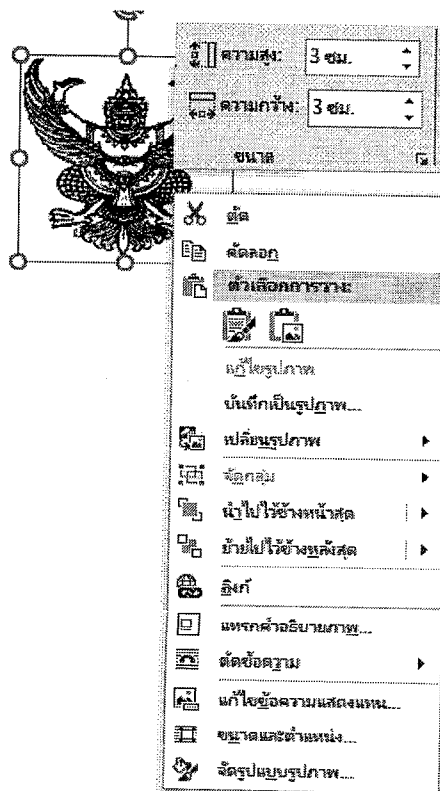 ความสูง: 3 ซม.
ความกว้าง: 3 ซม.
ขนาด
ตัด
คัดลอก
ตัวเลือกการวาง:
แก้ไขรูปภาพ
บันทึกเป็นรูปภาพ...
เปลี่ยนรูปภาพ
จัดกลุ่ม
นำไปไว้ข้างหน้าสุด
ย้ายไปไว้ข้างหลังสุด
ลิงก์
แทรกคำอธิบายภาพ...
ตัดข้อความ
แก้ไขข้อความแสดงแทน...
ขนาดและตำแหน่ง...
จัดรูปแบบรูปภาพ...